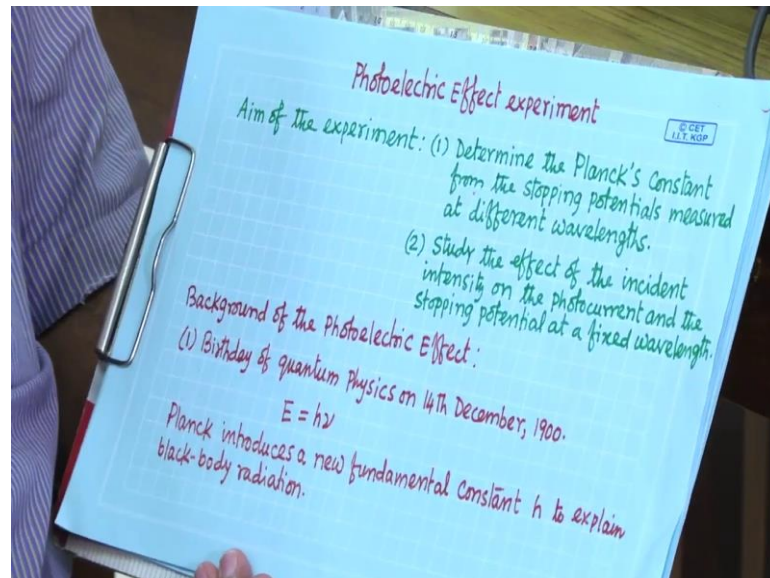 Photoelectric Effect experiment
© CET
I.I.T. KGP
Aim of the experiment: (1) Determine the Planck's Constant
from the stopping potentials measured
at different wavelengths.
(2) Study the effect of the incident
intensity on the photocurrent and the
stopping potential at a fixed wavelength.
Background of the Photoelectric Effect:
(1) Birthday of quantum Physics on 14th December, 1900.
E = hν
Planck introduces a new fundamental constant h to explain
black-body radiation.